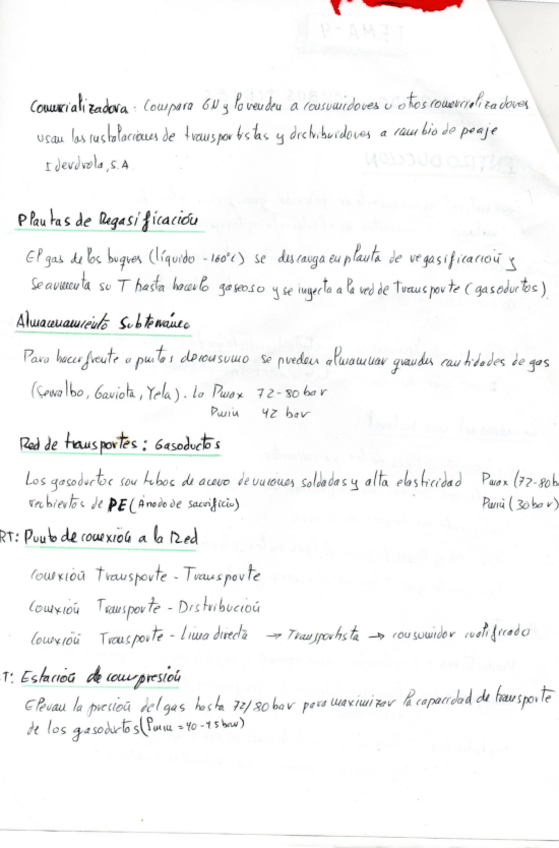 Comercializadora: Compra GN y lo vende a consumidores u otros comercializadores
usan las instalaciones de transportistas y distribuidores a cambio de peaje
Iderdrola, S.A.
Plantas de Regasificación
El gas de los buques (líquido -160ºC) se descarga en planta de regasificación y
se aumenta su T hasta hacerlo gaseoso y se inyecta a la red de Transporte (gasoductos)
Almacenamiento Subterráneo
Para hacer frente a puntas de consumo se pueden almacenar grandes cantidades de gas
(Serralbo, Gaviota, Yela). La Pmax 72-80 bar
Pmin 42 bar
Red de transportes: Gasoductos
Los gasoductos son tubos de acero de uniones soldadas y alta elasticidad Pmax (72-80b
recubiertos de PE (Ánodo de sacrificio) Pmin (30 bar)
RT: Punto de conexión a la Red
Conexión Transporte - Transporte
Conexión Transporte - Distribución
Conexión Transporte - Línea directa → Transportista → consumidor cualificado
T: Estación de compresión
Elevan la presión del gas hasta 72/80 bar para maximizar la capacidad de transporte
de los gasoductos (Pmin = 40-45 bar)